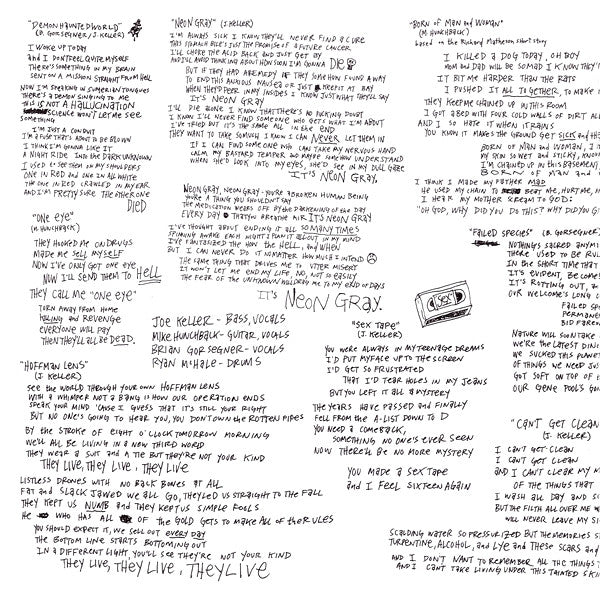 "DEMON HAUNTED WORLD"
(B. GORSEGNER / J. KELLER)
I WOKE UP TODAY
AND I DON'T FEEL QUITE MYSELF
THERE'S SOMETHING IN MY BRAIN
SENT ON A MISSION STRAIGHT FROM HELL
NOW I'M SPEAKING IN SUMERIAN TONGUES
THERE'S A DEMON SINGING TO ME
THIS IS NOT A HALLUCINATION
SCIENCE WON'T LET ME SEE
SOMETHING
I'M JUST A CONDUIT
I'M A FUSE THAT'S ABOUT TO BE BLOWN
I THINK I'M GONNA LIKE IT
A NIGHT RIDE INTO THE DARK UNKNOWN
I USED TO SEE THEM ON MY SHOULDERS
ONE IN RED AND ONE IN ALL WHITE
THE ONE IN RED CRAWLED IN MY EAR
AND I'M PRETTY SURE THE OTHER ONE
DIED
"ONE EYE"
(M. HUNCHBACK)
THEY HOOKED ME ON DRUGS
MADE ME SELL MYSELF
NOW I'VE ONLY GOT ONE EYE
NOW I'LL SEND THEM TO HELL
THEY CALL ME "ONE EYE"
TURN AWAY FROM HOME
KILLING AND REVENGE
EVERYONE WILL PAY
THEN THEY'LL ALL BE DEAD.
"HOFFMAN LENS"
(J. KELLER)
SEE THE WORLD THROUGH YOUR OWN HOFFMAN LENS
WITH A WHIMPER NOT A BANG IS HOW OUR OPERATION ENDS
SPEAK YOUR MIND 'CAUSE I GUESS THAT IT'S STILL YOUR RIGHT
BUT NO ONE'S GOING TO HEAR YOU, YOU DON'T OWN THE ROTTEN PIPES
BY THE STROKE OF EIGHT O'CLOCK TOMORROW MORNING
WE'LL ALL BE LIVING IN A NEW THIRD WORLD
THEY WEAR A SUIT AND A TIE BUT THEY'RE NOT YOUR KIND
THEY LIVE, THEY LIVE, THEY LIVE
LISTLESS DRONES WITH NO BACK BONES AT ALL
FAT AND SLACK JAWED WE ALL GO, THEY LED US STRAIGHT TO THE FALL
THEY KEPT US NUMB AND THEY KEPT US SIMPLE FOOLS
HE WHO HAS ALL OF THE GOLD GETS TO MAKE ALL OF THE RULES
YOU SHOULD EXPECT IT, WE SELL OUT EVERY DAY
THE BOTTOM LINE STARTS BOTTOMING OUT
IN A DIFFERENT LIGHT, YOU'LL SEE THEY'RE NOT YOUR KIND
THEY LIVE, THEY LIVE, THEY LIVE
"NEON GRAY" (J. KELLER)
I'M ALWAYS SICK I KNOW THEY'LL NEVER FIND A CURE
THIS STOMACH BILE'S JUST THE PROMISE OF A FUTURE CANCER
I'LL CHOKE THE ACID BACK AND JUST GET BY
AND I'LL AVOID THINKING ABOUT HOW SOON I'M GONNA DIE
BUT IF THEY HAD A REMEDY IF THEY SOMEHOW FOUND A WAY
TO END THIS ANXIOUS NAUSEA OR JUST KEEP IT AT BAY
WHEN THEY PEER IN MY INSIDES I KNOW JUST WHAT THEY'LL SAY
IT'S NEON GRAY
I'LL DIE ALONE I KNOW THAT THERE'S NO FUCKING DOUBT
I KNOW I'LL NEVER FIND SOMEONE WHO GETS WHAT I'M ABOUT
I'VE TRIED BUT IT'S THE SAME ALL IN THE END
THEY WANT TO TAKE SO MUCH I KNOW I CAN NEVER LET THEM IN
IF I CAN FIND SOME ONE WHO CAN TAKE MY NERVOUS HAND
CALM MY BASTARD TEMPER AND MAYBE SOMEHOW UNDERSTAND
WHEN SHE'D LOOK INTO MY EYES, SHE'D SEE IN MY DULL GAZE
IT'S NEON GRAY.
NEON GRAY, NEON GRAY - YOU'RE A BROKEN HUMAN BEING
YOU'RE A THING YOU SHOULDN'T SAY
THE MEDICATION WEARS OFF BY THE DARKENING OF THE DAY
EVERY DAY THAT YOU BREATHE AIR IT'S NEON GRAY
I'VE THOUGHT ABOUT ENDING IT ALL SO MANY TIMES
SPINNING AWAKE EACH NIGHT I PLAN IT ALL OUT IN MY MIND
I'VE FANTASIZED THE HOW THE HELL, AND WHEN
BUT I CAN NEVER DO IT NO MATTER HOW MUCH I INTEND
THE SAME THING THAT DRIVES ME TO UTTER MISERY
IT WON'T LET ME END MY LIFE, NO, NOT SO EASILY
THE FEAR OF THE UNKNOWN HOLDING ME TO MY END OF DAYS
IT'S NEON GRAY.
JOE KELLER - BASS, VOCALS
MIKE HUNCHBACK - GUITAR, VOCALS
BRIAN GORSEGNER - VOCALS
RYAN MCHALE - DRUMS
"SEX TAPE"
(J. KELLER)
YOU WERE ALWAYS IN MY TEENAGE DREAMS
I'D PUT MY FACE UP TO THE SCREEN
I'D GET SO FRUSTRATED
THAT I'D TEAR HOLES IN MY JEANS
BUT YOU LEFT IT ALL A MYSTERY
THE YEARS HAVE PASSED AND FINALLY
FELL FROM THE A-LIST DOWN TO D
YOU NEED A COMEBACK,
SOMETHING NO ONE'S EVER SEEN
NOW THERE'LL BE NO MORE MYSTERY
YOU MADE A SEX TAPE
AND I FEEL SIXTEEN AGAIN
SEX
"BORN OF MAN AND WOMAN"
(M. HUNCHBACK)
based on the Richard Matheson short story
I KILLED A DOG TODAY, OH BOY
MOM AND DAD WILL BE SO MAD I KNOW THEY'
IT BIT ME HARDER THAN THE RATS
I PUSHED IT ALL TOGETHER, TO MAKE
THEY KEEP ME CHAINED UP IN THIS ROOM
I GOT A BED WITH FOUR COLD WALLS OF DIRT AL
AND I SO HATE IT WHEN IT RAINS
YOU KNOW IT MAKES THE GROUND GET SICK AND
BORN OF MAN AND WOMAN,
MY SKIN SO WET AND STICKY, KNOW
I'M CHAINED UP IN THIS BASEMENT,
BORN OF MAN AND
I THINK I MADE MY FATHER MAD
HE USED MY CHAIN TO BEAT ME, HURT ME,
I HEAR MY MOTHER SCREAM TO GOD:
"OH GOD, WHY DID YOU DO THIS? WHY DID YOU
"FAILED SPECIES" (B. GORSEGNER
NOTHING'S SACRED ANYM
THERE USED TO BE RUL
IN THE SHORT TIME THAT
IT'S EVIDENT, BECOME
IT'S ROTTING OUT,
OUR WELCOME'S LONG
FAILED SPE
PERMANE
BID FAREW
NATURE WILL SOON TAKE
WE'RE THE LATEST DIN
WE SUCKED THIS PLANET
OF THINGS WE NEED JUS
GOT SOFT ON TOP OF
OUR GENE POOL'S GON
"CAN'T GET CLEAN
(J. KELLER)
I CAN'T GET CLEAN
I CAN'T GET CLEAN
AND I CAN'T CLEAR MY M
OF THE THINGS THAT
I WASH ALL DAY AND
BUT THE FILTH ALL OVER ME W
WILL NEVER LEAVE MY
SCALDING WATER SO PRESSURIZED BUT THE MEMORIES
TURPENTINE, ALCOHOL, AND LYE AND THESE SCARS AND
AND I DON'T WANT TO REMEMBER ALL THE THINGS
AND I CAN'T TAKE LIVING UNDER THIS TAINTED SKIN